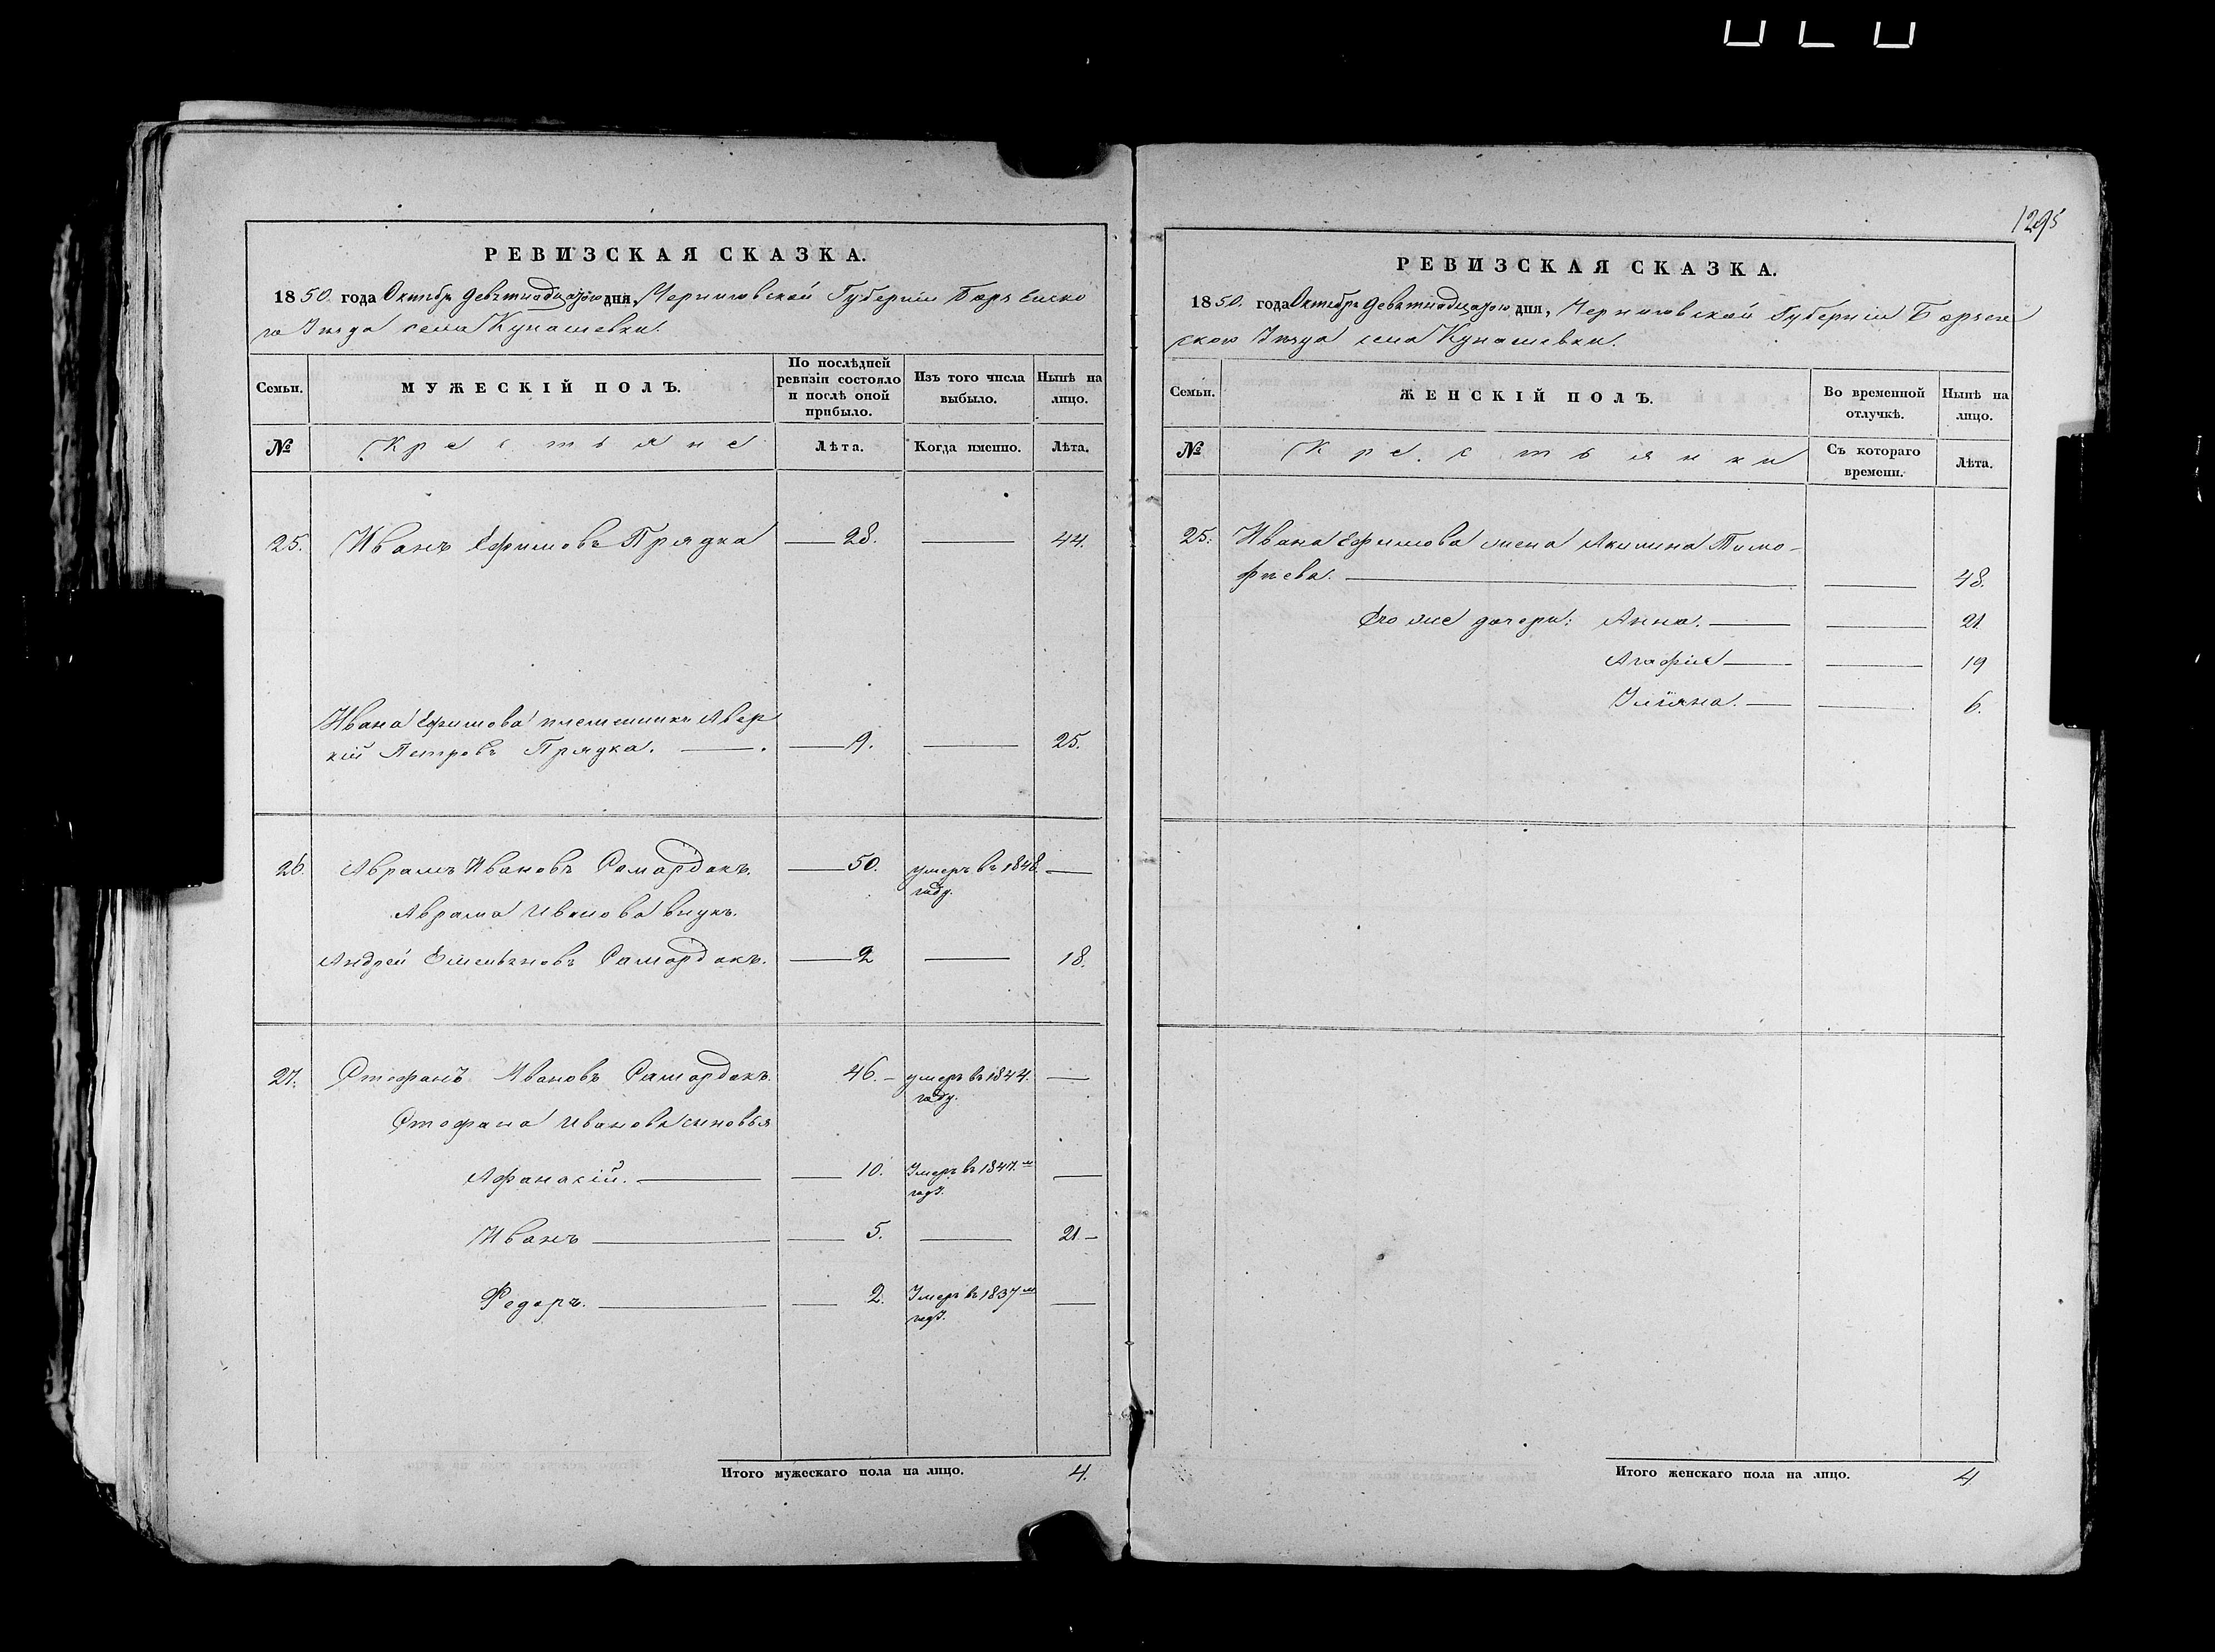 1295
РЕВИЗСКАЯ СКАЗКА.
1850 года Октября девятнадцатого дня, Черниговской Губерніи Борзенско
го Уезда села Кунашевки.
Семьи. МУЖЕСКІЙ ПОЛЪ. По послѣдней ревизіи состояло и послѣ оной прибыло. Изъ того числа выбыло. Нынѣ на лицо.
№ Крестьяне Лѣта. Когда именно. Лѣта.
25. Иванъ Ефимовъ Прядка — 28. — 44.
Ивана Ефимова племянникъ Авер
кій Петровъ Прядка. — 9. — 25.
26. Аврамъ Ивановъ Самардакъ. — 50. умеръ въ 1848. —
году.
Аврама Иванова внукъ.
Андрей Емельяновъ Самардакъ. — 2 — 18.
27. Стефанъ Ивановъ Самардакъ. 46. — умеръ въ 1844. —
году.
Стефана Иванова сыновья
Афанасій. — 10. Умеръ въ 1847.м —
годѣ.
Иванъ — 5. — 21 —
Федоръ. — 2. Умеръ въ 1837м —
годѣ.
Итого мужескаго пола на лицо. 4.
РЕВИЗСКАЯ СКАЗКА.
1850. года Октября девятнадцатого дня, Черниговской Губерніи Борзен
ского Уезда села Кунашевки.
Семьи. ЖЕНСКІЙ ПОЛЪ. Во временной отлучкѣ. Нынѣ на лицо.
№ Крестьянки Съ котораго времени. Лѣта.
25. Ивана Ефимова жена Акилина Тимо-
фѣева. — — 48.
Его же дочери: Анна. — — 21
Агафія — — 19
Уліяна. — — 6.
Итого женскаго пола на лицо. 4